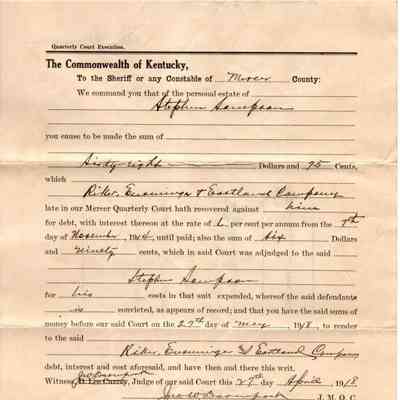 Quarterly Court Execution.
The Commonwealth of Kentucky,
To the Sheriff or any Constable of Mercer County:
We command you that of the personal estate of
Stephen Sampson
you cause to be made the sum of
Sixty eight Dollars and 75 Cents,
which
Riker, Ensminger & Eastland Company
late in our Mercer Quarterly Court hath recovered against him
for debt, with interest thereon at the rate of 6 per cent per annum from the 7th
day of November 1914, until paid; also the sum of six Dollars
and ninety cents, which in said Court was adjudged to the said
Stephen Sampson
for his costs in that suit expended, whereof the said defendants
is convicted, as appears of record; and that you have the said sums of
money before our said Court on the 27th day of May, 1918, to render
to the said
Riker, Ensminger & Eastland Company
debt, interest and cost aforesaid, and have then and there this writ.
Witness, Lee Curry, Judge of our said Court this 27th day April 1918.
J. M. Q. C